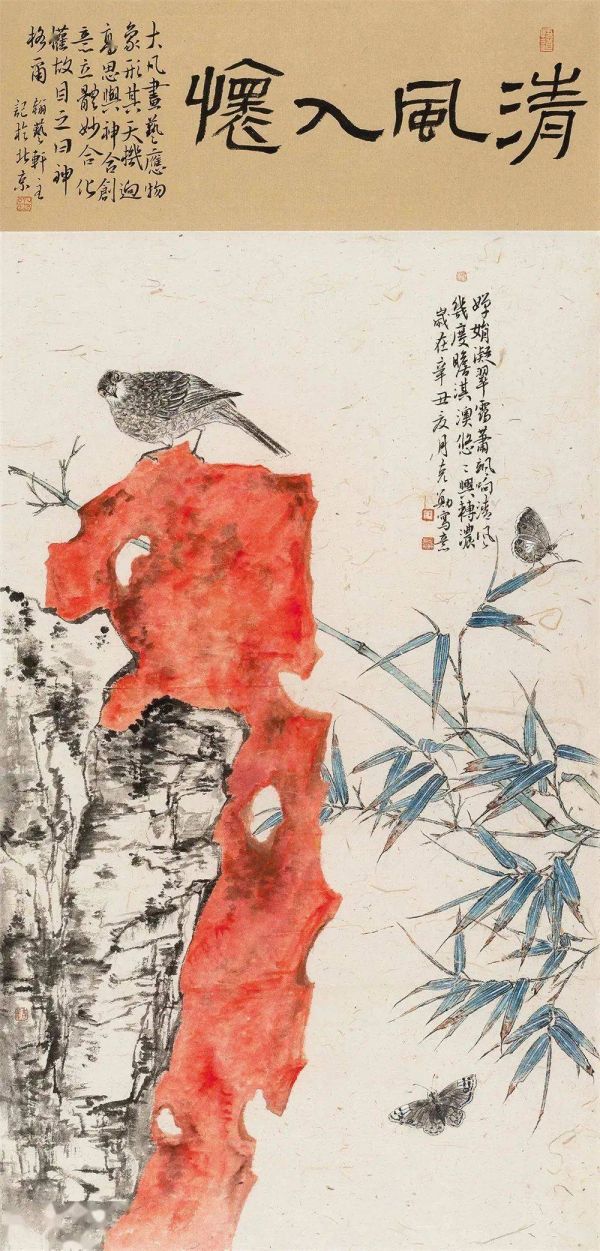 清風入懷
大凡畫藝應物
象形其天機迥
高思與神合創
意立體妙合化
權故目之曰神
格爾 翰藝軒主
記於北京
嬋娟凝翠靄蕭颯响清風
幾度瞻淇澳悠々興轉濃
歲在辛丑夏月克勤寫意